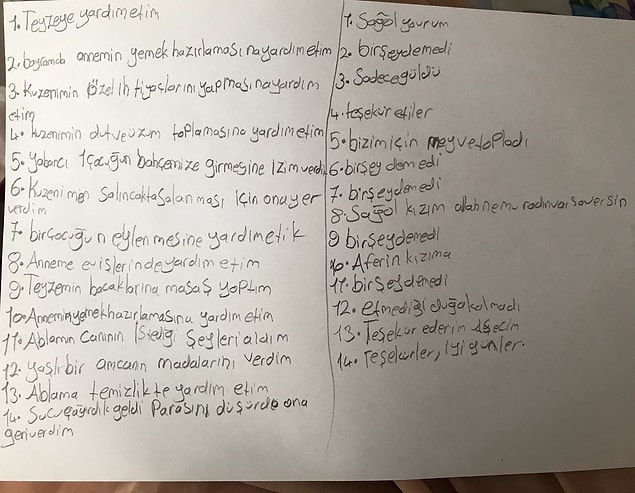 1. Teyzeye yardımetim
2. bayramda annemin yemek hazırlaması nayardımetim
3. Kuzenimin özel ihtiyaçlarını yapmasınayardım
etim
4. kuzenimin dutveüzüm toplamasına yardımetim
5. Yabancı 1çocuğun bahçemize girmesine izimverdim
6. Kuzenimen Salıncaktasalanması için onayer
verdim
7. birçocuğun eylenmesine yardımetik
8. Anneme evişlerindeyardım etim
9. Teyzemin bacaklarına masaş yaptım
10. Anneminyemekhazırlamasına yardımetim
11. Ablamın Canının istediği şeyleri aldım
12. yaşlı bir amcanın madalarını verdim
13. Ablama temizlikte yardım etim
14. Sucuçağırdık geldi Parasını düşürdü ona
geriverdim
1. Sağol yavrum
2. birşeydemedi
3. Sadecegüldü
4. teşekür etiler
5. bizim için meyvetopladı
6. birşey demedi
7. birşeydemedi
8. Sağol kızım allah nemuradınvarsaversin
9 birşeydemedi
10. Aferin kızıma
11. birşeydemedi
12. etmediği duğakalmadı
13. Teşekür ederim
14. Teşekürler, iyi günler.